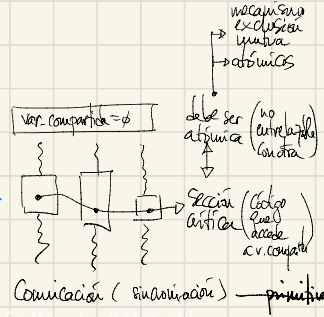 mecanismo
exclusión
mutua
atómicos
var_compartida=ø
debe ser
atómica
(no
entrelazable
con otra)
Sección
crítica
(Código
que
accede
a v. compart)
Comunicación (sincronización)
primitiv